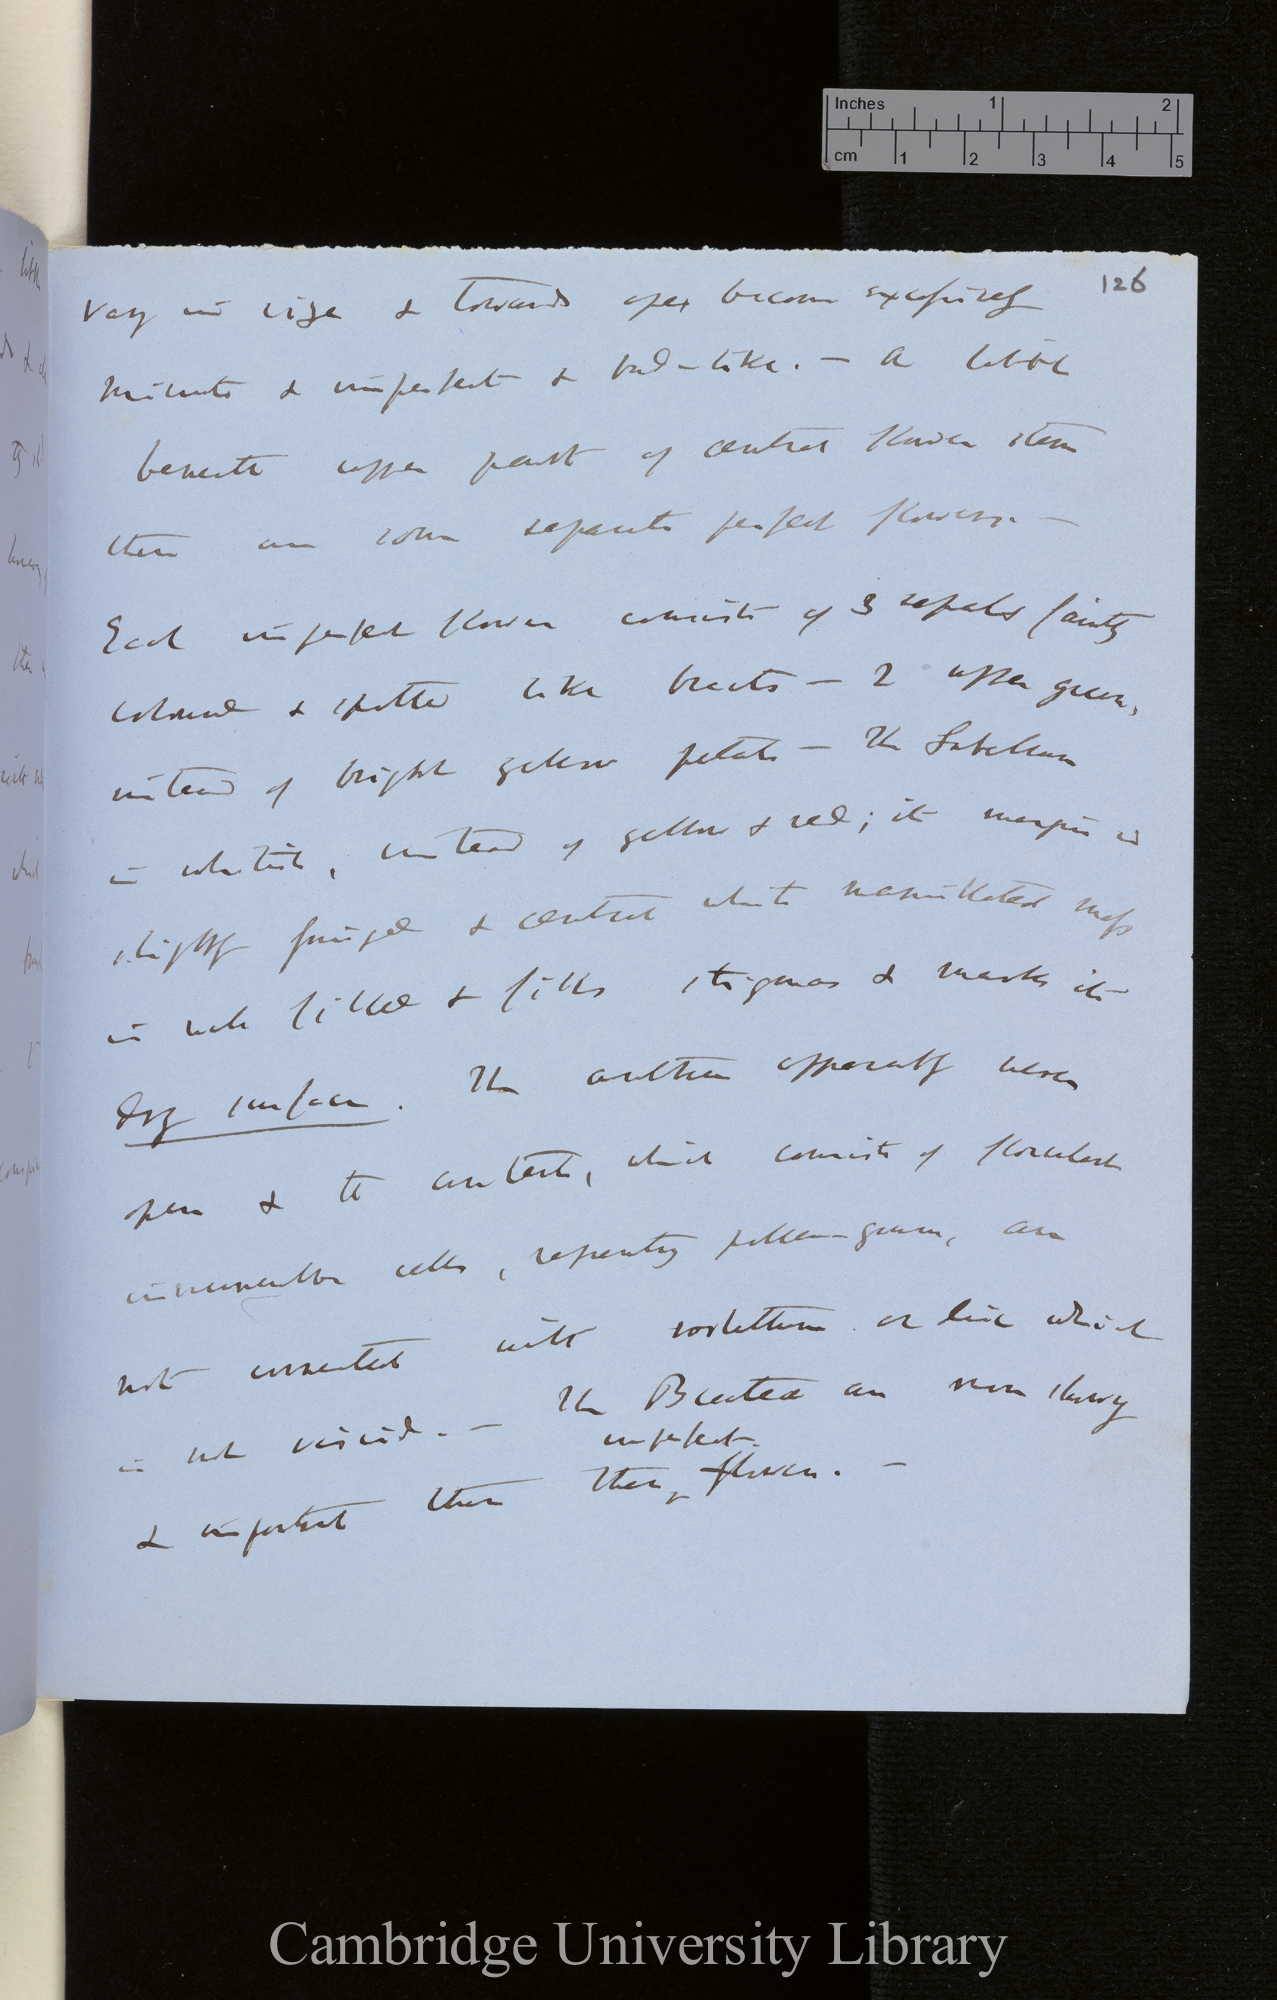 Inches 1 2
cm 1 2 3 4 5
126
vary in size & towards apex become excessively
minute & imperfect & bud-like. — A little
beneath upper part of central flower stem
there are some separate perfect flowers. —
Each imperfect flower consists of 3 sepals faintly
coloured & spotted like bracts — 2 upper green,
instead of bright yellow petals — The Labellum
is whitish, instead of yellow & red; its margin is
slightly fringed & central white mamillated mass
is not & fills stigmas & marks its
dry surface. The anther apparently never
open & the contents, which consists of
innumerable cells, representing pollen-grains, are
not connected with rostellum or line which
is not viscid. — The Bracteæ are more showy
imperfect
& important than these flowers. —
Cambridge University Library